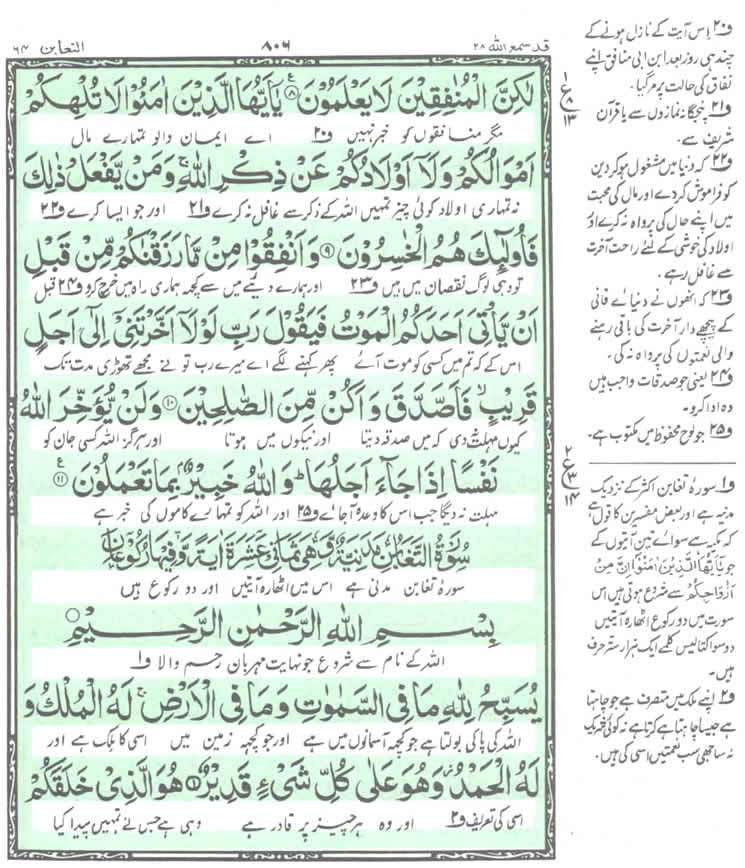 قد سمع الله ۲۸
۸۰۶
التغابن ۶۴
لٰكِنَّ الْمُنٰفِقِيْنَ لَا يَعْلَمُوْنَ ۸ يٰٓاَيُّهَا الَّذِيْنَ اٰمَنُوْا لَا تُلْهِكُمْ
مگر منافقوں کو خبر نہیں ف۲۰ اے ایمان والو تمہارے مال
اَمْوَالُكُمْ وَلَآ اَوْلَادُكُمْ عَنْ ذِكْرِ اللّٰهِ ۚ وَمَنْ يَّفْعَلْ ذٰلِكَ
نہ تمہاری اولاد کوئی چیز تمہیں اللہ کے ذکر سے غافل نہ کرے ف۲۱ اور جو ایسا کرے ف۲۲
فَاُولٰٓئِكَ هُمُ الْخٰسِرُوْنَ ۹ وَاَنْفِقُوْا مِنْ مَّا رَزَقْنٰكُمْ مِّنْ قَبْلِ
تو وہی لوگ نقصان میں ہیں ف۲۳ اور ہمارے دیئے میں سے کچھ ہماری راہ میں خرچ کرو ف۲۴ قبل
اَنْ يَّاْتِيَ اَحَدَكُمُ الْمَوْتُ فَيَقُوْلَ رَبِّ لَوْلَآ اَخَّرْتَنِيْٓ اِلٰٓى اَجَلٍ
اس کے کہ تم میں کسی کو موت آئے پھر کہنے لگے اے میرے رب تو نے مجھے تھوڑی مدت تک
قَرِيْبٍ ۙ فَاَصَّدَّقَ وَاَكُنْ مِّنَ الصّٰلِحِيْنَ ۱۰ وَلَنْ يُّؤَخِّرَ اللّٰهُ
کیوں مہلت نہ دی کہ میں صدقہ دیتا اور نیکوں میں ہوتا اور ہرگز اللہ کسی جان کو
نَفْسًا اِذَا جَآءَ اَجَلُهَا ؕ وَاللّٰهُ خَبِيْرٌۢ بِمَا تَعْمَلُوْنَ ۱۱
مہلت نہ دیگا جب اس کا وعدہ آجائے ف۲۵ اور اللہ کو تمہارے کاموں کی خبر ہے
سُوْرَةُ التَّغَابُنِ مَدَنِيَّةٌ وَّهِيَ ثَمَانِيَ عَشْرَةَ اٰيَةً وَّفِيْهَا رُكُوْعَانِ
سورۂ تغابن مدنی ہے اس میں اٹھارہ آیتیں اور دو رکوع ہیں
بِسْمِ اللّٰهِ الرَّحْمٰنِ الرَّحِيْمِ
اللہ کے نام سے شروع جو نہایت مہربان رحم والا ف۱
يُسَبِّحُ لِلّٰهِ مَا فِي السَّمٰوٰتِ وَمَا فِي الْاَرْضِ ۚ لَهُ الْمُلْكُ وَ
اللہ کی پاکی بولتا ہے جو کچھ آسمانوں میں ہے اور جو کچھ زمین میں اسی کا ملک ہے اور
لَهُ الْحَمْدُ ۫ وَهُوَ عَلٰى كُلِّ شَيْءٍ قَدِيْرٌ ۱ هُوَ الَّذِيْ خَلَقَكُمْ
اسی کی تعریف ف۲ اور وہ ہر چیز پر قادر ہے وہی ہے جس نے تمہیں پیدا کیا
ف۲۰ اس آیت کے نازل ہونے کے
چند ہی روز بعد ابن ابی منافق اپنے
نفاق کی حالت پر مرگیا۔
ف۲۱ پنجگانہ نمازوں سے یا قرآن
شریف سے۔
ف۲۲ کہ دنیا میں مشغول ہوکر دین
کو فراموش کردے اور مال کی محبت
میں اپنے حال کی پرواہ نہ کرے اور
اولاد کی خوشی کے لئے راحت آخرت
سے غافل رہے۔
ف۲۳ کہ انھوں نے دنیائے فانی
کے پیچھے دار آخرت کی باقی رہنے
والی نعمتوں کی پرواہ نہ کی۔
ف۲۴ یعنی جو صدقات واجب ہیں
وہ ادا کرو۔
ف۲۵ جو لوح محفوظ میں مکتوب ہے۔
ف۱ سورۂ تغابن اکثر کے نزدیک
مدنیہ ہے اور بعض مفسرین کا قول ہے
کہ مکیہ ہے سوائے تین آیتوں کے
جو يٰٓاَيُّهَا الَّذِيْنَ اٰمَنُوْٓا اِنَّ مِنْ
اَزْوَاجِكُمْ سے شروع ہوتی ہیں اس
سورت میں دو رکوع اٹھارہ آیتیں
دو سو اکتالیس کلمے ایک ہزار ستر حرف
ہیں۔
ف۲ اپنے ملک میں متصرف ہے جو چاہتا
ہے جیسا چاہتا ہے کرتا ہے نہ کوئی شریک
نہ ساجھی سب نعمتیں اسی کی ہیں۔
۱
ع
۸
۱۳
۲
ع
۳
۱۴